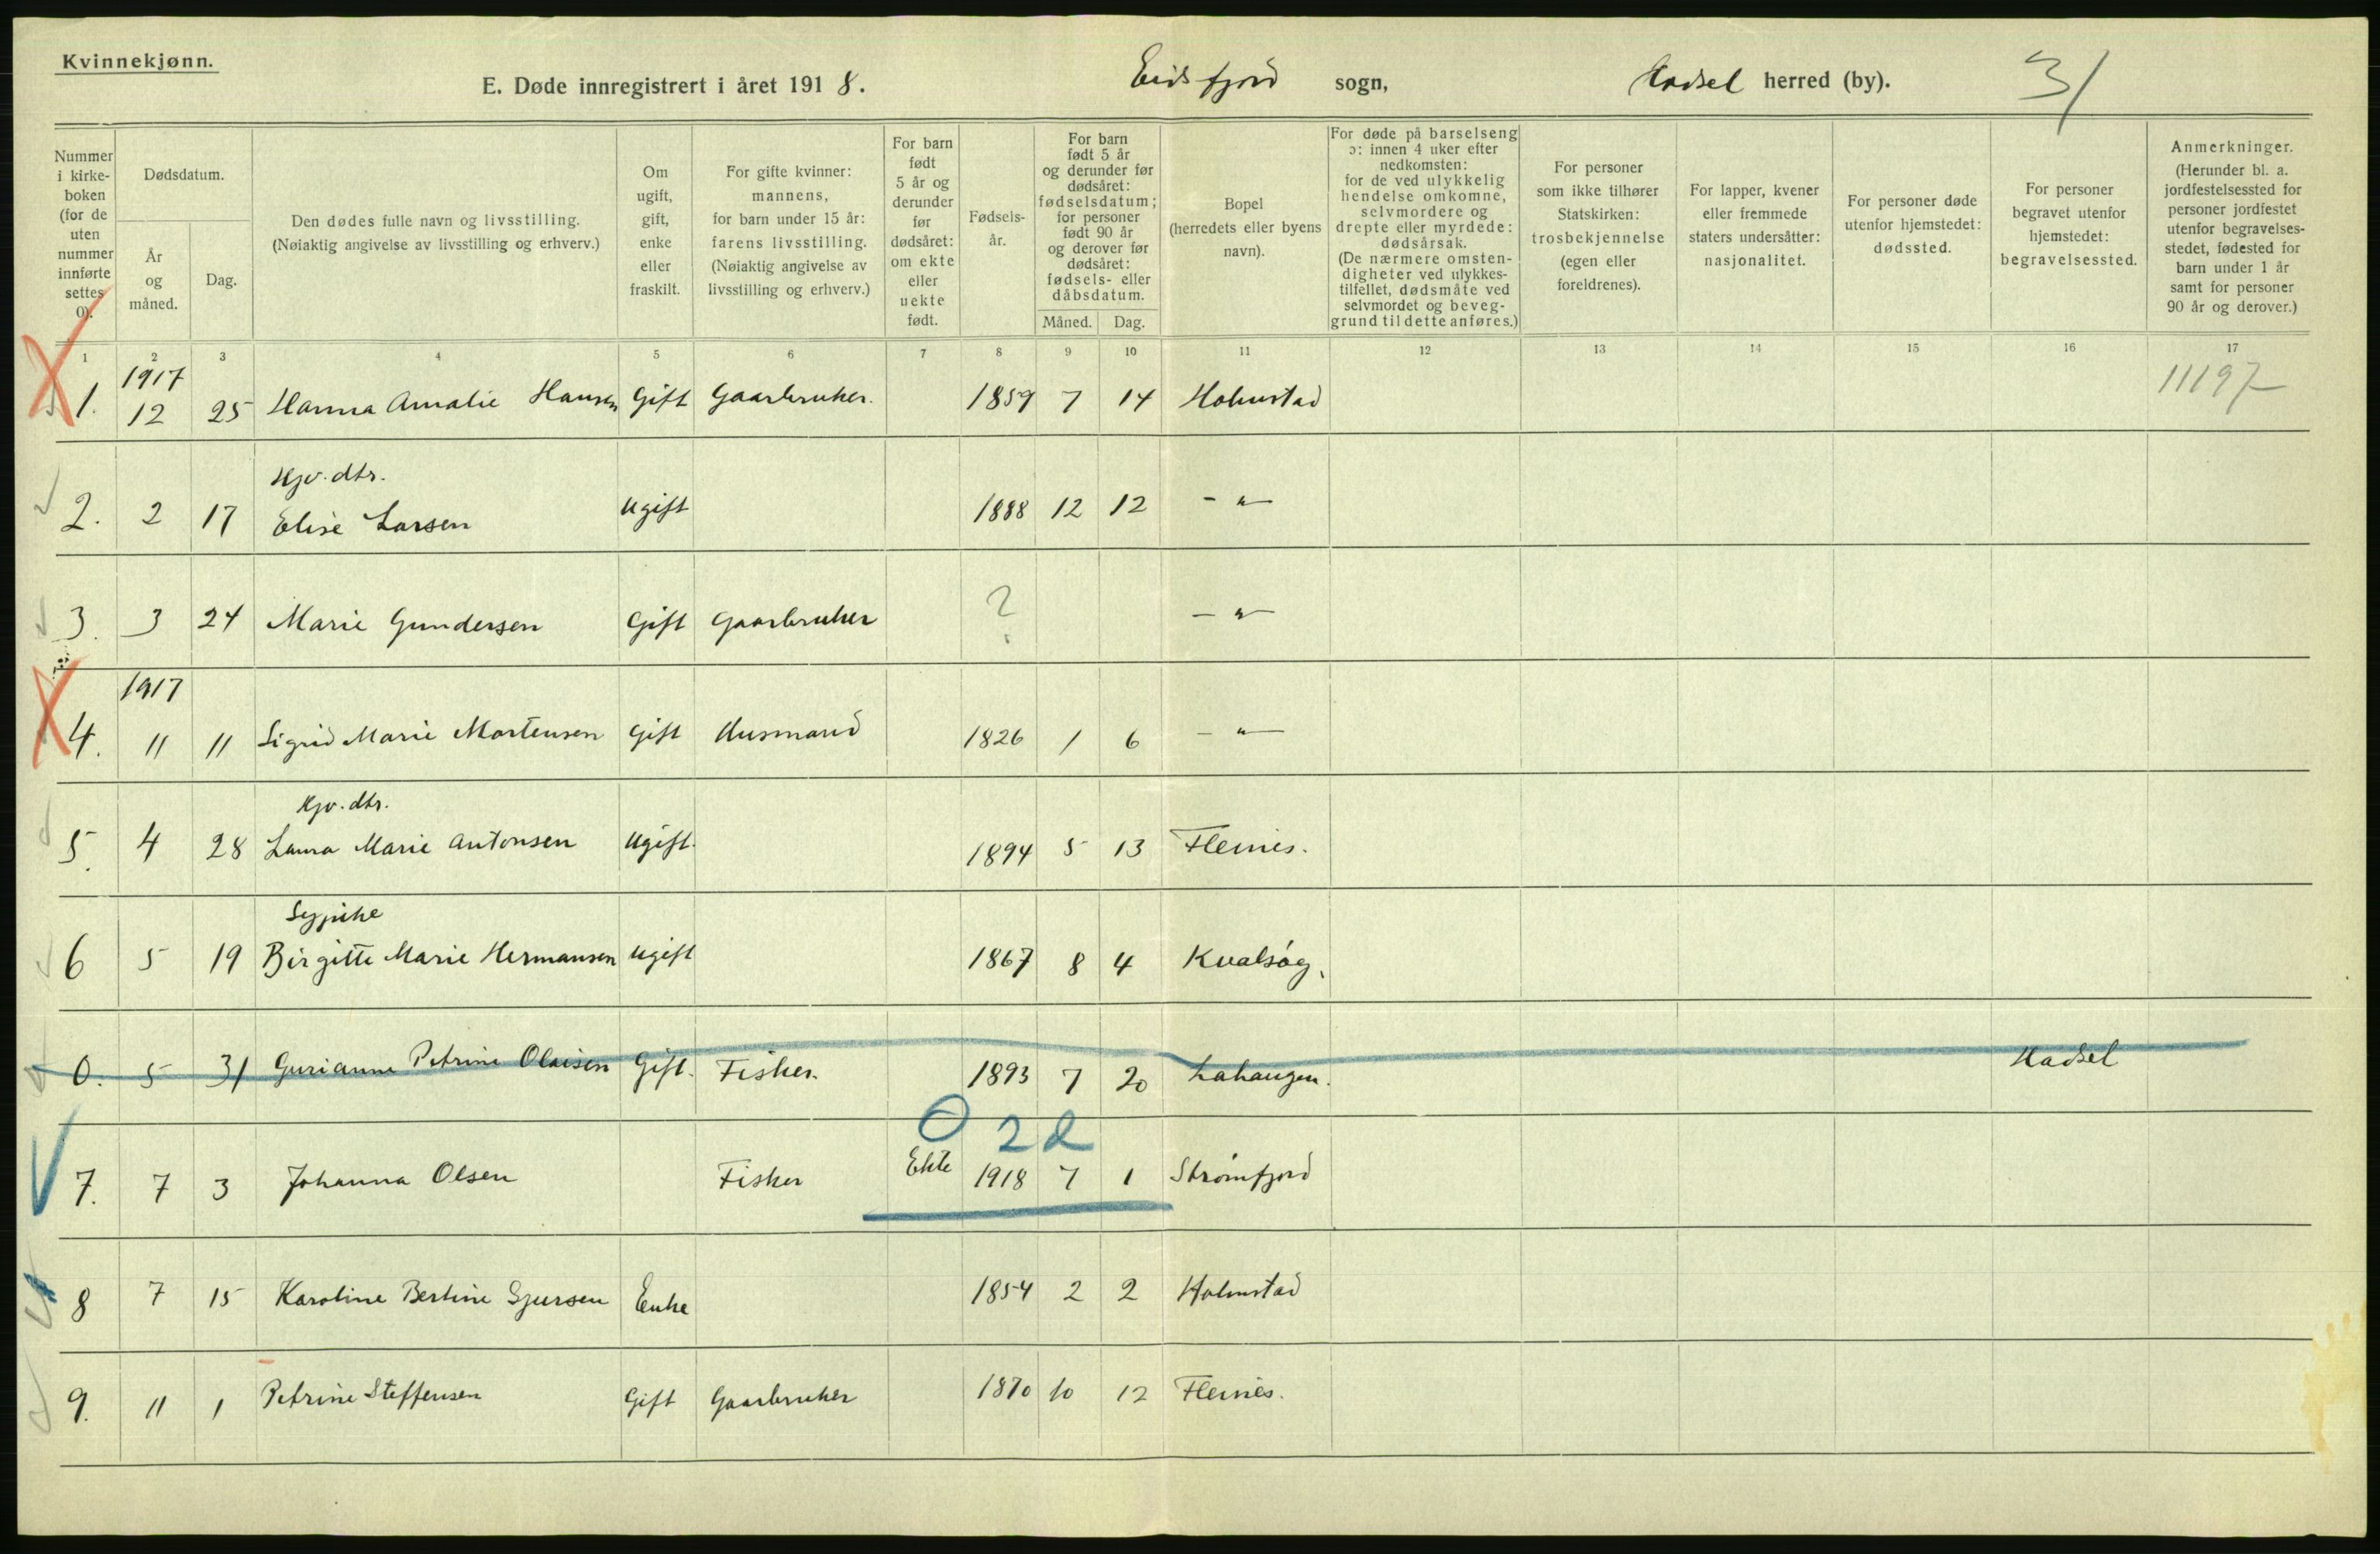 Kvinnekjønn.
E. Døde innregistrert i året 1918. Eidsfjord sogn, Hadsel herred (by). 31
Nummer i kirkeboken (for de uten nummer innførte settes 0).
Dødsdatum.
År og måned.
Dag.
Den dødes fulle navn og livsstilling.
(Nøiaktig angivelse av livsstilling og erhverv.)
Om ugift, gift, enke eller fraskilt.
For gifte kvinner: mannens, for barn under 15 år: farens livsstilling. (Nøiaktig angivelse av livsstilling og erhverv.)
For barn født 5 år og derunder før dødsåret: om ekte eller uekte født.
Fødselsår.
For barn født 5 år og derunder før dødsåret: fødselsdatum; for personer født 90 år og derover før dødsåret: fødsels- eller dåbsdatum.
Måned. Dag.
Bopel (herredets eller byens navn).
For døde på barselseng ɔ: innen 4 uker efter nedkomsten: for de ved ulykkelig hendelse omkomne, selvmordere og drepte eller myrdede: dødsårsak. (De nærmere omstendigheter ved ulykkestilfellet, dødsmåte ved selvmordet og beveggrund til dette anføres.)
For personer som ikke tilhører Statskirken: trosbekjennelse (egen eller foreldrenes).
For lapper, kvener eller fremmede staters undersåtter: nasjonalitet.
For personer døde utenfor hjemstedet: dødssted.
For personer begravet utenfor hjemstedet: begravelsessted.
Anmerkninger. (Herunder bl. a. jordfestelsessted for personer jordfestet utenfor begravelsesstedet, fødested for barn under 1 år samt for personer 90 år og derover.)
1 2 3 4 5 6 7 8 9 10 11 12 13 14 15 16 17
1917
1. 12 25 Hanna Amalie Hansen Gift Gaarbruker. 1859 7 14 Holmstad 11197
Gjv. dtr.
2. 2 17 Elise Larsen Ugift 1888 12 12 - " -
3. 3 24 Marie Gundersen Gift Gaarbruker ? - " -
1917
4. 11 11 Sigrid Marie Mortensen Gift Husmand 1826 1 6 - " -
Gjv. dtr.
5. 4 28 Laura Marie Antonsen Ugift. 1894 5 13 Fleines.
Sypike
6 5 19 Birgitte Marie Hermansen Ugift 1867 8 4 Kvalsøg.
0. 5 31 Gurianna Petrine Olaisen Gift. Fisker. 1893 7 20 Lahaugen. Hadsel
0 2 d
7. 7 3 Johanna Olsen Fisker Ekte 1918 7 1 Strømfjord
8 7 15 Karoline Bertine Sjursen Enke 1854 2 2 Holmstad
9. 11 1 Petrine Steffensen Gift Gaarbruker 1870 10 12 Fleines.